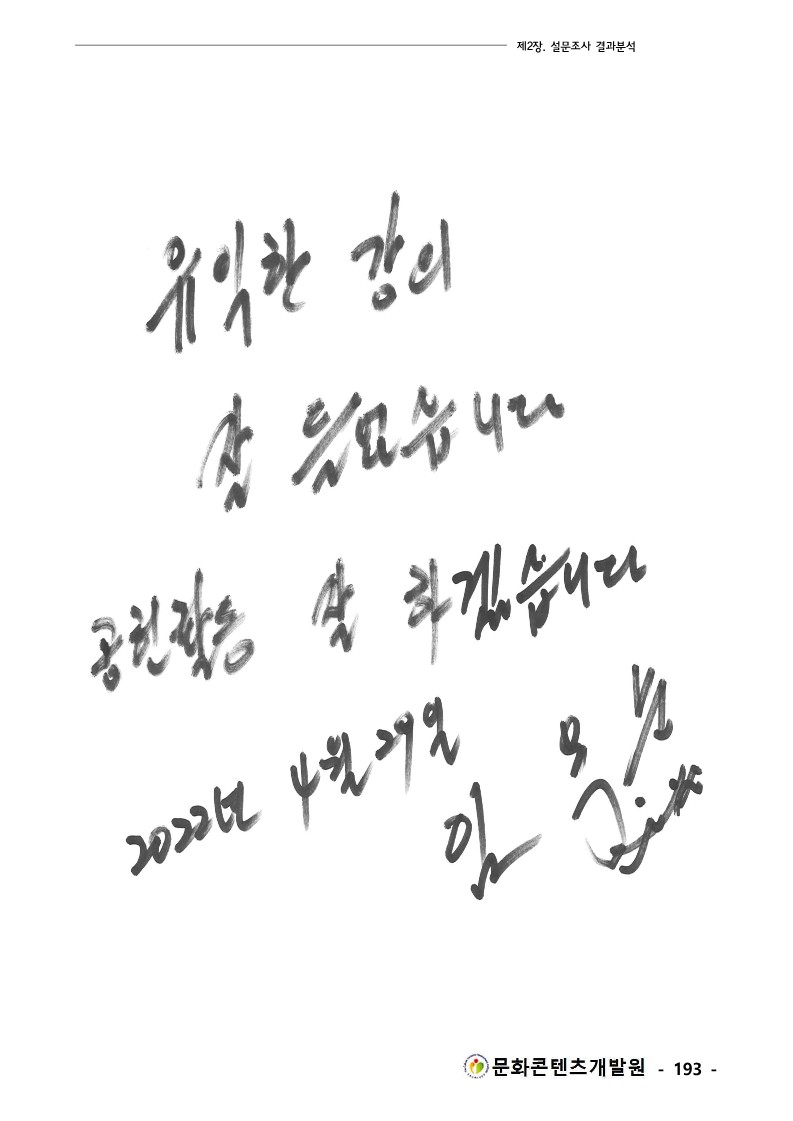 제2장. 설문조사 결과분석
유익한 강의
잘 들었습니다
공헌활동 잘 하겠습니다
2022년 4월 29일
문화콘텐츠개발원 - 193 -